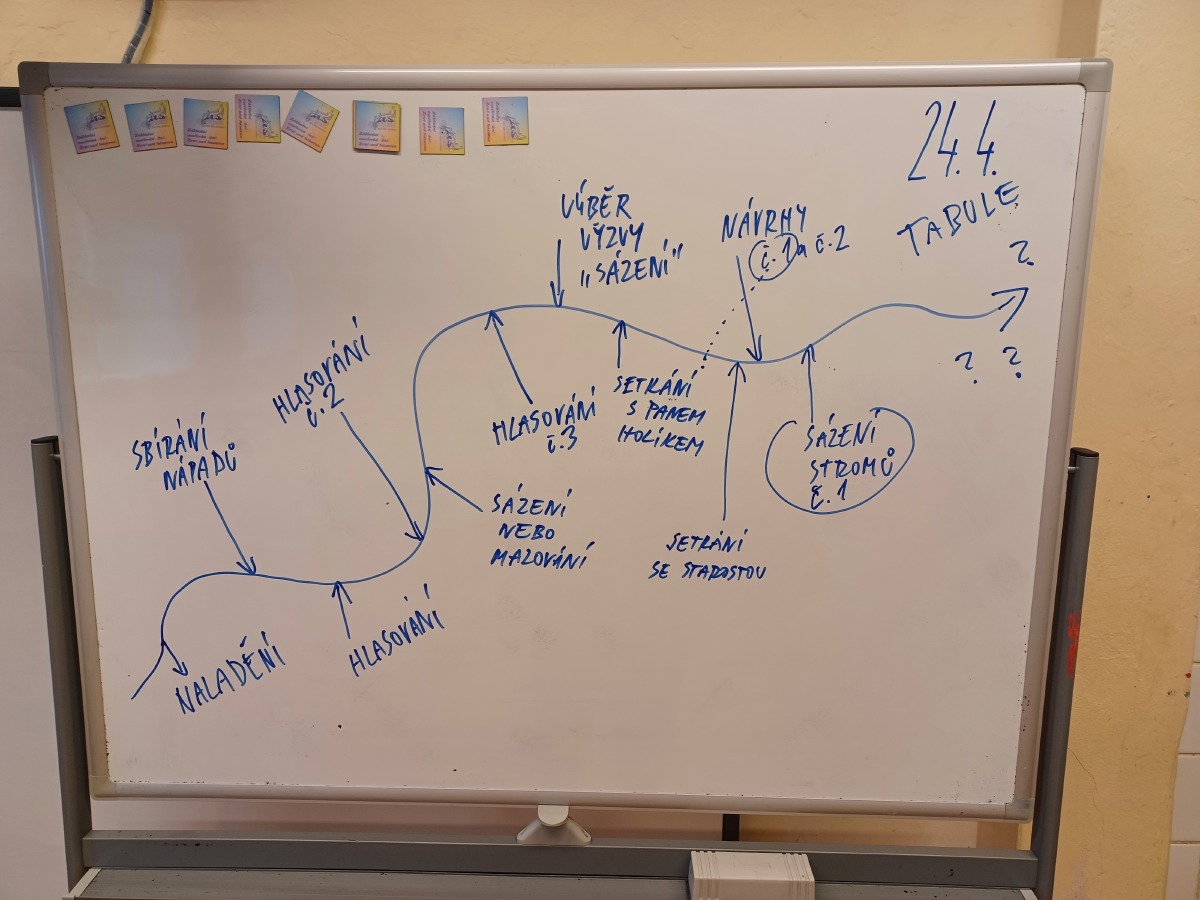 24.4.
TABULE
?
? ?
VÝBĚR
VÝZVY
„SÁZENÍ"
NÁVRHY
č.1 a č.2
HLASOVÁNÍ
č.2
SBÍRÁNÍ
NÁPADŮ
HLASOVÁNÍ
č.3
SETKÁNÍ
S PANEM
HOLÍKEM
SÁZENÍ
STROMŮ
č.1
SÁZENÍ
NEBO
MALOVÁNÍ
SETKÁNÍ
SE STAROSTOU
HLASOVÁNÍ
NALADĚNÍ